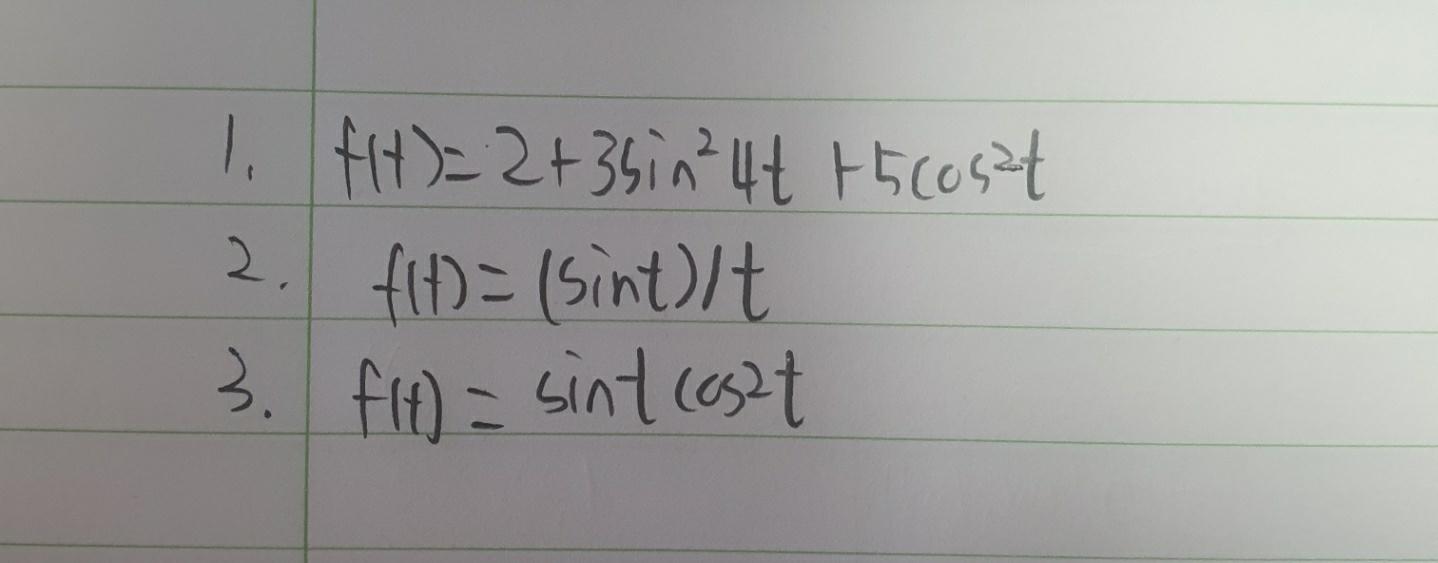 1. f(t)=2+3sin²4t+5cos²t
2. f(t)=(sint)/t
3. f(t)=sint cos2t